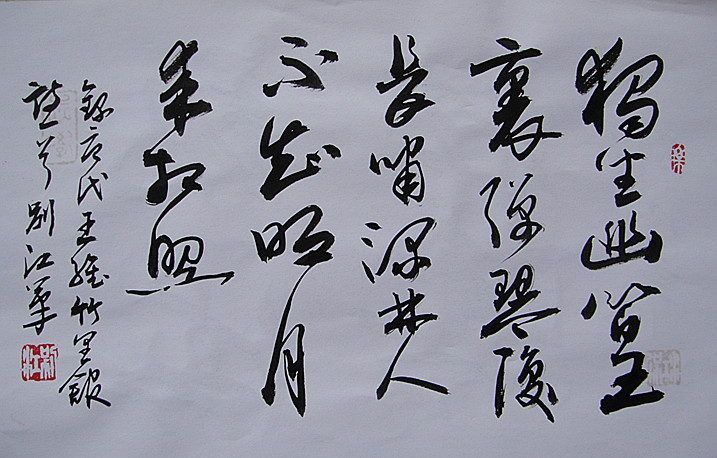 獨坐幽篁
裏彈琴復
長嘯深林人
不知明月
来相照
錄唐代王維竹里館
別江